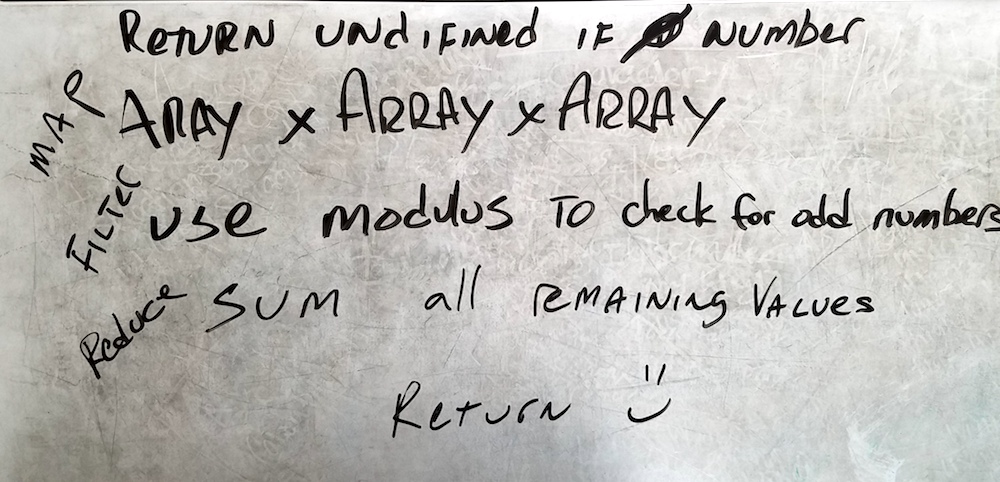 RETURN UNdIFINEd IF NUMBER
MAP ARAY x ARRAY x ARRAY
FILTER USE modulus To check for add numbers
Reduce SUM all REMAINING VALUES
Return